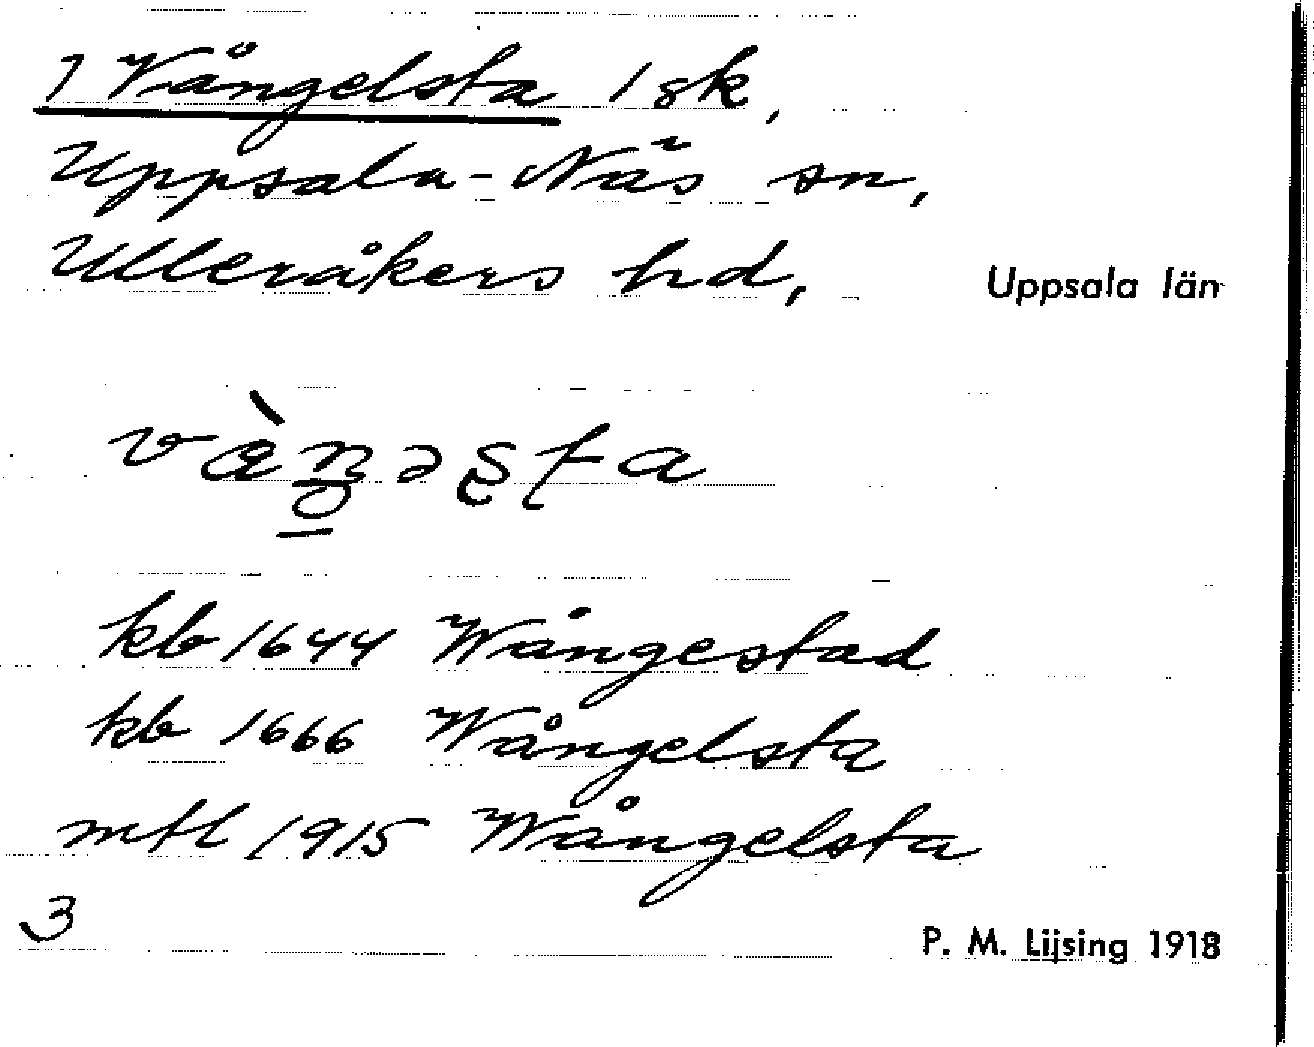 1 Vångelsta 1 sk,
Uppsala-Näs sn,
Ulleråkers hd,
Uppsala län
kb 1644 Wångestad
kb 1666 Wångelsta
mtl 1915 Wångelsta
3
P. M. Lijsing 1918